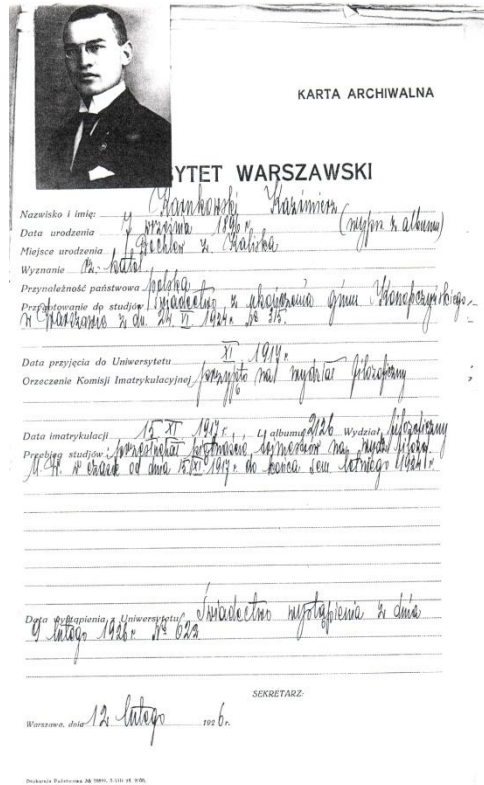 KARTA ARCHIWALNA
YTET WARSZAWSKI
Nazwisko i imię: Kazimierz
Data urodzenia 7 września 1896 r. (wypis z albumu)
Miejsce urodzenia z. Kaliska
Wyznanie rz.-katol
Przynależność państwowa polska
Przygotowanie do studjów Świadectwo z ukończenia gimn
w Warszawie z dn. 24. 315.
Data przyjęcia do Uniwersytetu XI 1917 r.
Orzeczenie Komisji Imatrykulacyjnej przyjęto na wydział filozoficzny
Data imatrykulacji 15 XI 1917 r. L albumu 2126 Wydział filozoficzny
Przebieg studjów: na wydz filozof.
U. W. w czasie od dnia 15 XI 1917 r. do końca sem letniego 1924 r.
Data wystąpienia z Uniwersytetu Świadectwo wystąpienia z dnia
9 lutego 1926 r № 622
SEKRETARZ:
Warszawa, dnia 12 lutego 1926 r.